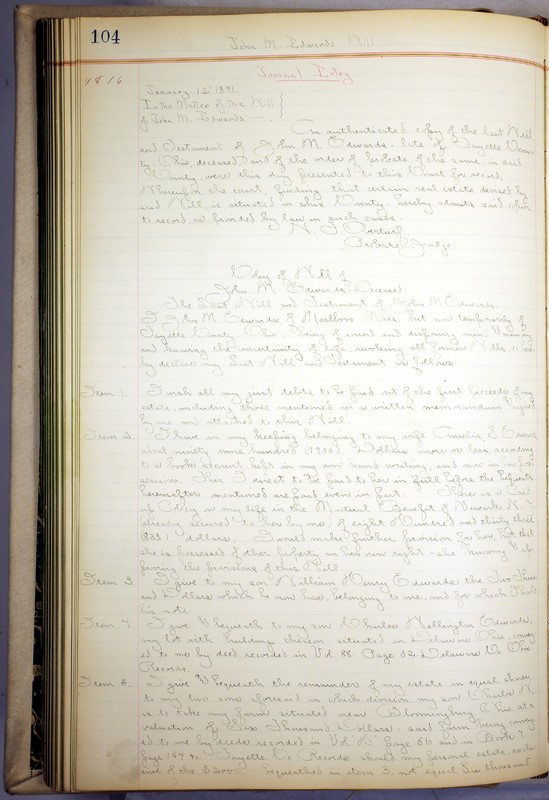 104
John M. Edwards Will
4816
Journal Entry
January 12" 1891.
In the Matter of the Will
of John M. Edwards
An authenticated copy of the last Will
and Testament of John M. Edwards late of Fayette Coun-
ty, Ohio, deceased and of the order of Probate of the same in said
County, were this day presented to this Court for record.
Wherefore the court, finding that certain real estate devised by
said Will, is situated in this County hereby admits said copies
to record, as provided by law in such cases.
N. J. Overturf
Probate Judge
Copy of Will of
John M. Edwards Deceased.
The Last Will and Testament of John M. Edwards.
I John M. Edwards of Marlboro, Mass. but now temporarily of
Fayette County, Ohio, being of sound and disposing mind & memory
and knowing the uncertainty of life, revoking all former Wills, do here
by declare my Last Will and Testament as follows.
Item 1. I wish all my just debts to be paid out of the first proceeds of my
estate, including those mentioned in a written memorandum signed
by me and attached to this Will.
Item 2. I have in my keeping belonging to my wife Amelia E. Edwards
about ninety nine hundred (9900) Dollars, more or less, according
to a book account kept in my own hand writing, and now in her pos-
session. This I direct to be paid to her in full before the bequests
hereinafter mentioned are paid even in part. There is a Paid
up Policy on my life in the Mutual Benefit of Newark, N. J.
(already secured to her by me) of eight Hundred and thirty three
(833) dollars. I would make further provision for her, but that
she is possessed of other property in her own right - she knowing & ap-
proving the provisions of this Will.
Item 3. I give to my son William Henry Edwards the Two Thous-
and Dollars which he now has, belonging to me, and for which I hold
his note.
Item 4. I give & bequeath to my son Charles Wallington Edwards,
my lot with buildings thereon situated in Delaware Ohio, convey-
ed to me by deed recorded in Vol. 88 Page 52 Delaware Co. Ohio
Records.
Item 5. I give & bequeath the remainder of my estate in equal shares
to my two sons aforesaid in which division my son Charles W.
is to take my farm situated near Bloomingburg Ohio, at a
valuation of Six Thousand Dollars - said farm being convey-
ed to me by deeds recorded in Vol. H. Page 56 and in Book 7
page 154 &c Fayette Co. Records should my personal estate, exclu-
sive of the $2000 bequeathed in item 3, not equal Six thousand